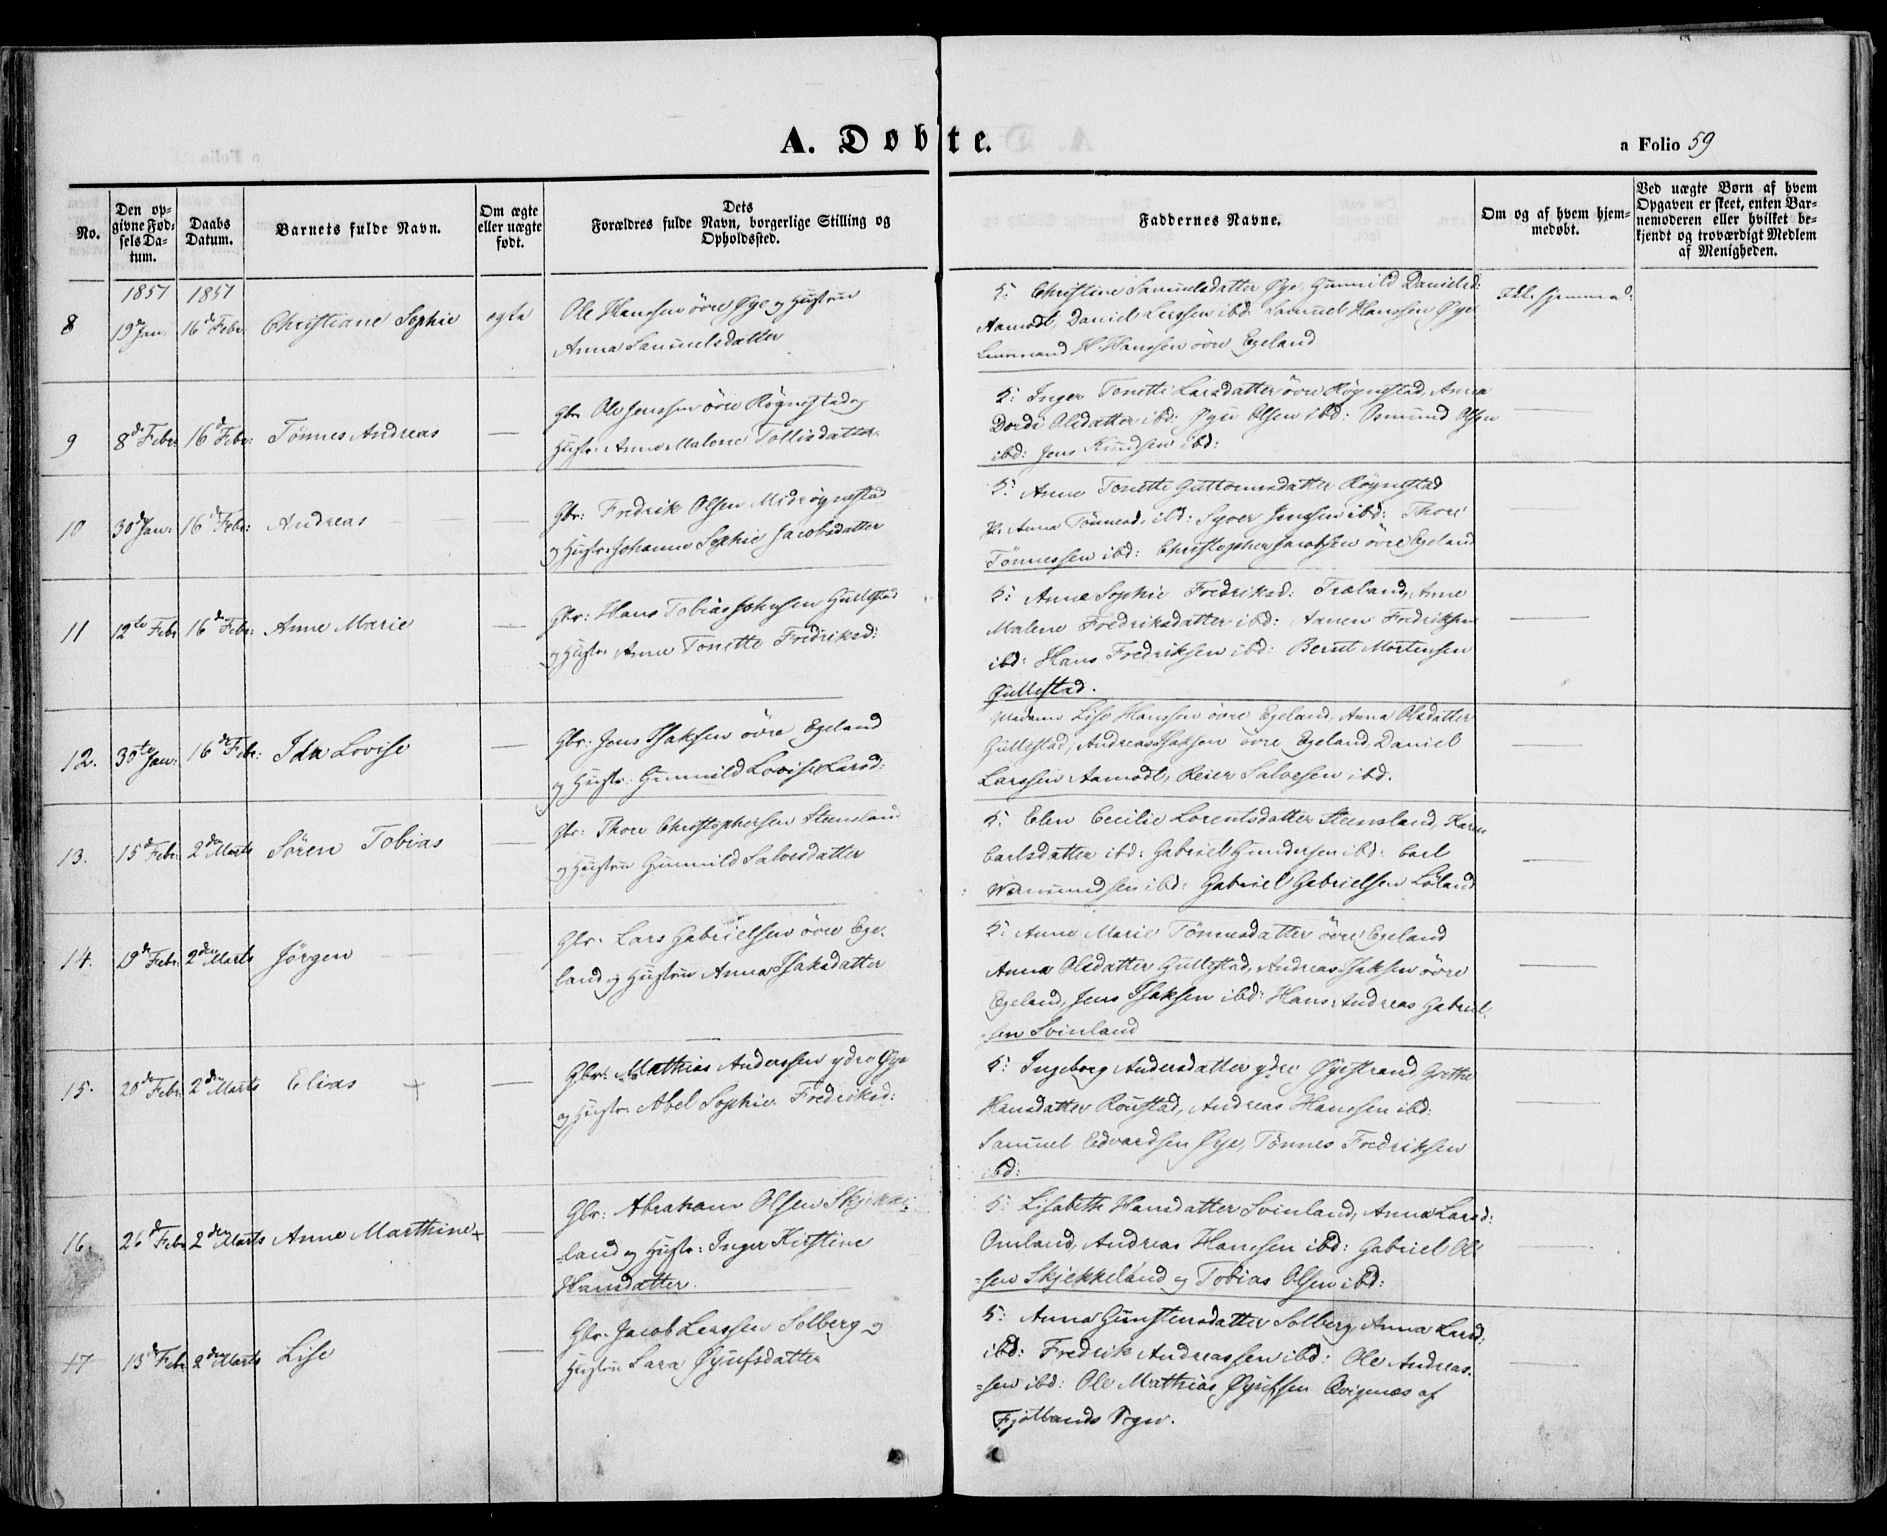 A. Døbte.
a Folio 59
No.
Den op-
givne Fød-
sels Da-
tum.
Daabs
Datum.
Barnets fulde Navn.
Om ægte
eller uægte
født.
Dets
Forældres fulde Navn, borgerlige Stilling og
Opholdssted.
Faddernes Navne.
Om og af hvem hjem-
medøbt.
Ved uægte Børn af hvem
Opgaven er skeet, enten Bar-
nemoderen eller hvilket be-
kjendt og troværdigt Medlem
af Menigheden.
1851 1851
8 19de Jan. 16de Febr. Christiane Sophie ægte
Ole Hanssen övre Øye og Hustrue
Anna Samuelsdatter
5: Christine Samuelsdatter Øye, Gunnild Danielsd:
Aamodt, Daniel Larssen ibd: Samuel Hanssen Øye
Lensmand H. Hanssen övre Egeland
Ikke hjemmed:
9 8de Febr: 16de Febr: Tönnes Andreas —
Gbr. Ole Jenssen övre Røgnestad og
Hustr. Anne Malene Tollisdatter.
5: Inger Tonette Larsdatter övre Røgnestad, Anna
Dorde Olsdatter ibd: Øyu Olsen ibd: Osmund Olsen
ibd: Jens Knudsen ibd:
—
10 30de Jan: 16de Febr: Andreas —
Gbr: Fredrik Olsen Midrøgnestad
og Hustr. Johanne Sophie Jacobsdatter
5: Anne Tonette Guttormsdatter Røgnestad
Anna Tønnesd. ibd: Syver Jenssen ibd: Thore
Tönnessen ibd: Christopher Jacobsen övre Egeland
—
11 12te Febr 16de Febr: Anne Marie —
Gbr: Hans Tobias Johnsen Gullestad
og Hustr. Anne Tonette Fredriksd:
5: Anne Sophie Fredriksd: Træland, Anne
Malene Fredriksdatter ibd: Aanen Fredriksen
ibd: Hans Fredriksen ibd: Berent Mortensen
Gullestad.
—
12. 30te Jan: 16de Febr: Ida Lovise —
Gbr: Jens Isaksen övre Egeland
og Hustr. Gunnild Lovise Larsd:
Madame Lise Hanssen övre Egeland, Anna Olsdatter
Gullestad, Andreas Isaksen övre Egeland, Daniel
Larssen Aamodt, Reier Salvesen ibd.
—
13. 15de Febr 2den Marts Sören Tobias —
Gbr: Thore Christophersen Steensland
og Hustrue Gunnild Salvesdatter
5: Elen Cecilie Lorentsdatter Steensland, Karen
Carlsdatter ibd: Gabriel Gundersen ibd: Carl
Wermundsen ibd: Gabriel Gabrielsen Löland
—
14. 19de Febr. 2den Marts Jörgen —
Gbr. Lars Gabrielsen övre Ege-
land og Hustrue Anna Isaksdatter
5: Anne Marie Tönnesdatter övre Egeland
Anna Olsdatter Gullestad, Andreas Isaksen övre
Egeland, Jens Isaksen ibd: Hans Andreas Gabriel-
sen Svinland
—
15. 20de Febr. 2den Marts Elias + —
Gbr: Mathias Anderssen ydre Øye
og Hustr. Abel Sophie Fredriksd:
5: Ingeborg Andersdatter ydre Øyestrand, Grethe
Hansdatter Roustad, Andreas Hanssen ibd:
Samuel Edvardsen Øye, Tönnes Fredriksen
ibd:
—
16. 26de Febr. 2den Marts Anne Marthine + —
Gbr: Abraham Olsen Skjekke-
land og Hustr: Inger Kirstine
Hansdatter.
5: Lisabeth Hansdatter Svinland, Anna Larsd:
Omland, Andreas Hanssen ibd: Gabriel Ol-
-sen Skjekkeland og Tobias Olsen ibd:
—
17 13de Febr 2den Marts Lise —
Gbr. Jacob Larssen Solberg og
Hustrue Sara Øyufsdatter
5: Anna Gunstensdatter Solberg, Anna Larsd:
ibd: Fredrik Andreassen ibd: Ole Andreas-
-sen ibd: Ole Mathias Øyufsen Qvignæs af
Fjotlands Sogn.
—